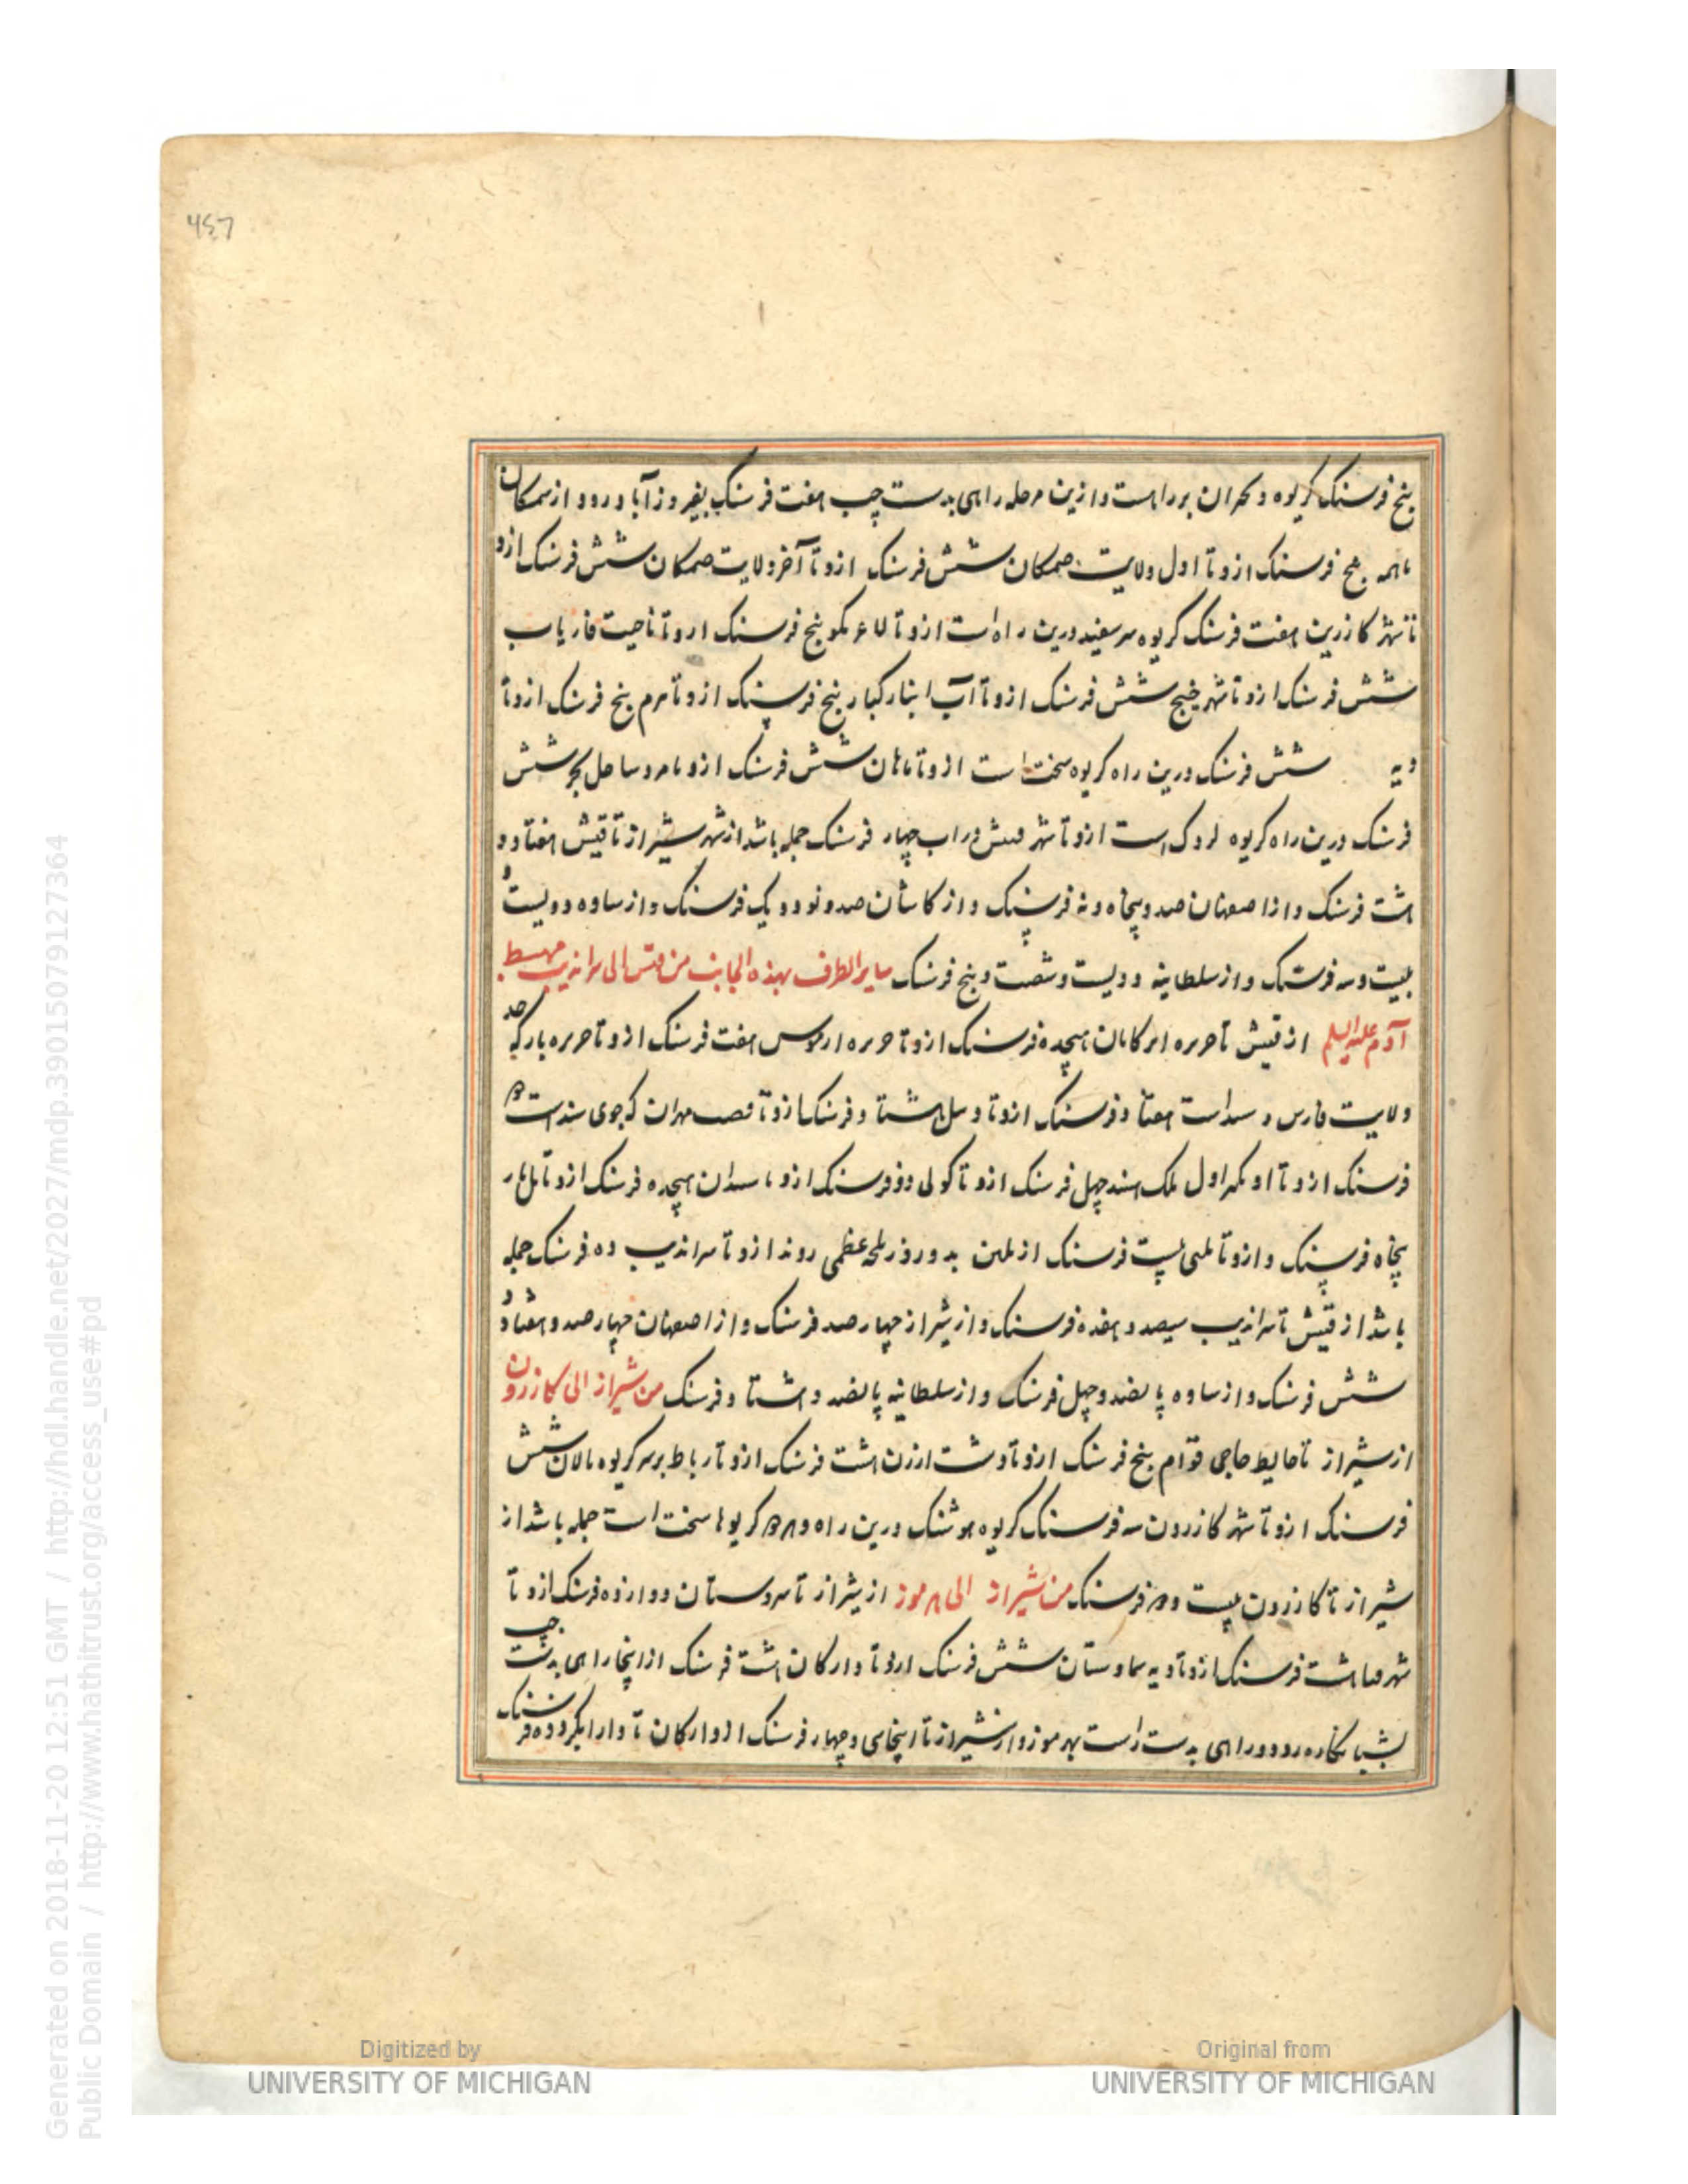 457
پنج فرسنک کریوه و بحران بر راهست و ازین مرحله راهی بدست چپ هفت فرسنک بفیروزآباد رود و از سمکان
پنج فرسنک ازو تا اول ولایت صمکان شش فرسنک ازو تا آخر ولایت صمکان شش فرسنک ازو
تا شهر کازرین هفت فرسنک کریوه سر سفید درین راه است ازو تا پنج فرسنک ازو تا ناحیت فاریاب
شش فرسنک ازو تا شهر خنج شش فرسنک ازو تا آب انبار کبار پنج فرسنک ازو تا هرم پنج فرسنک ازو تا
دیه شش فرسنک درین راه کریوه سخت است ازو تا ماهان شش فرسنک ازو تا ساحل بحر شش
فرسنک درین راه کریوه لردک است ازو تا شهر قیش در آب چهار فرسنک جمله باشد از شهر شیراز تا قیش هفتاد و
هشت فرسنک و از اصفهان صد و پنجاه و نه فرسنک و از کاشان صد و نود و یک فرسنک و از ساوه دویست و
بیست و سه فرسنک و از سلطانیه دویست و شصت و پنج فرسنک سایر الطرف بهذه الجانب من قیس الی سراندیب مهبط
آدم علیه السلم از قیش تا جزیره ابرکافان هیجده فرسنک ازو تا جزیره ارموس هفت فرسنک ازو تا جزیره بار که حد
ولایت فارس و سند است هفتاد فرسنک ازو تا دیبل هشتاد فرسنک ازو تا مصب مهران که جوی سند است دو
فرسنک ازو تا اول ملک هند چهل فرسنک ازو تا کولی دو فرسنک ازو تا سندان هیجده فرسنک ازو تا
پنجاه فرسنک و ازو تا بلین بیست فرسنک از بلین بدو روز بلجه عظمی روند ازو تا سراندیب ده فرسنک جمله
باشد از قیش تا سراندیب سیصد و هفده فرسنک و از شیراز چهار صد فرسنک و از اصفهان چهار صد و هفتاد و
شش فرسنک و از ساوه پانصد و چهل فرسنک و از سلطانیه پانصد و هشتاد فرسنک من شیراز الی کازرون
از شیراز تا حایط حاجی قوام پنج فرسنک ازو تا دشت ارزن هشت فرسنک ازو تا رباط بر سر کریوه مالان شش
فرسنک ازو تا شهر کازرون سه فرسنک کریوه هوشنک درین راه و هر دو کریوها سخت است جمله باشد از
شیراز تا کازرون بیست و دو فرسنک من شیراز الی هرموز از شیراز تا سروستان دوازده فرسنک ازو تا
شهر فسا هشت فرسنک ازو تا دیه شش فرسنک ازو تا دارکان هشت فرسنک از اینجا راهی بدست چپ
بشبانکاره رود و راهی بدست راست بهرموز و از شیراز تا اینجا سی و چهار فرسنک ازو ارکان تا دارابکرد ده فرسنک